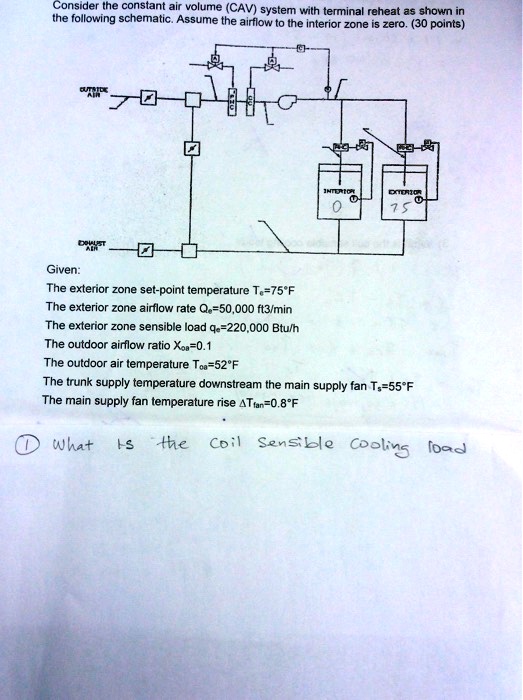 Consider the constant air volume (CAV) system with terminal reheat as shown in
the following schematic. Assume the airflow to the interior zone is zero. (30 points)
C
OUTSIDE
AIR
PHC
CC
RHC
RHC
INTERIOR
T
0
EXTERIOR
T
75
EXHAUST
AIR
Given:
The exterior zone set-point temperature Te=75°F
The exterior zone airflow rate Qe=50,000 ft3/min
The exterior zone sensible load qe=220,000 Btu/h
The outdoor airflow ratio Xoa=0.1
The outdoor air temperature Toa=52°F
The trunk supply temperature downstream the main supply fan Ts=55°F
The main supply fan temperature rise ΔTfan=0.8°F
① What is the coil sensible cooling load